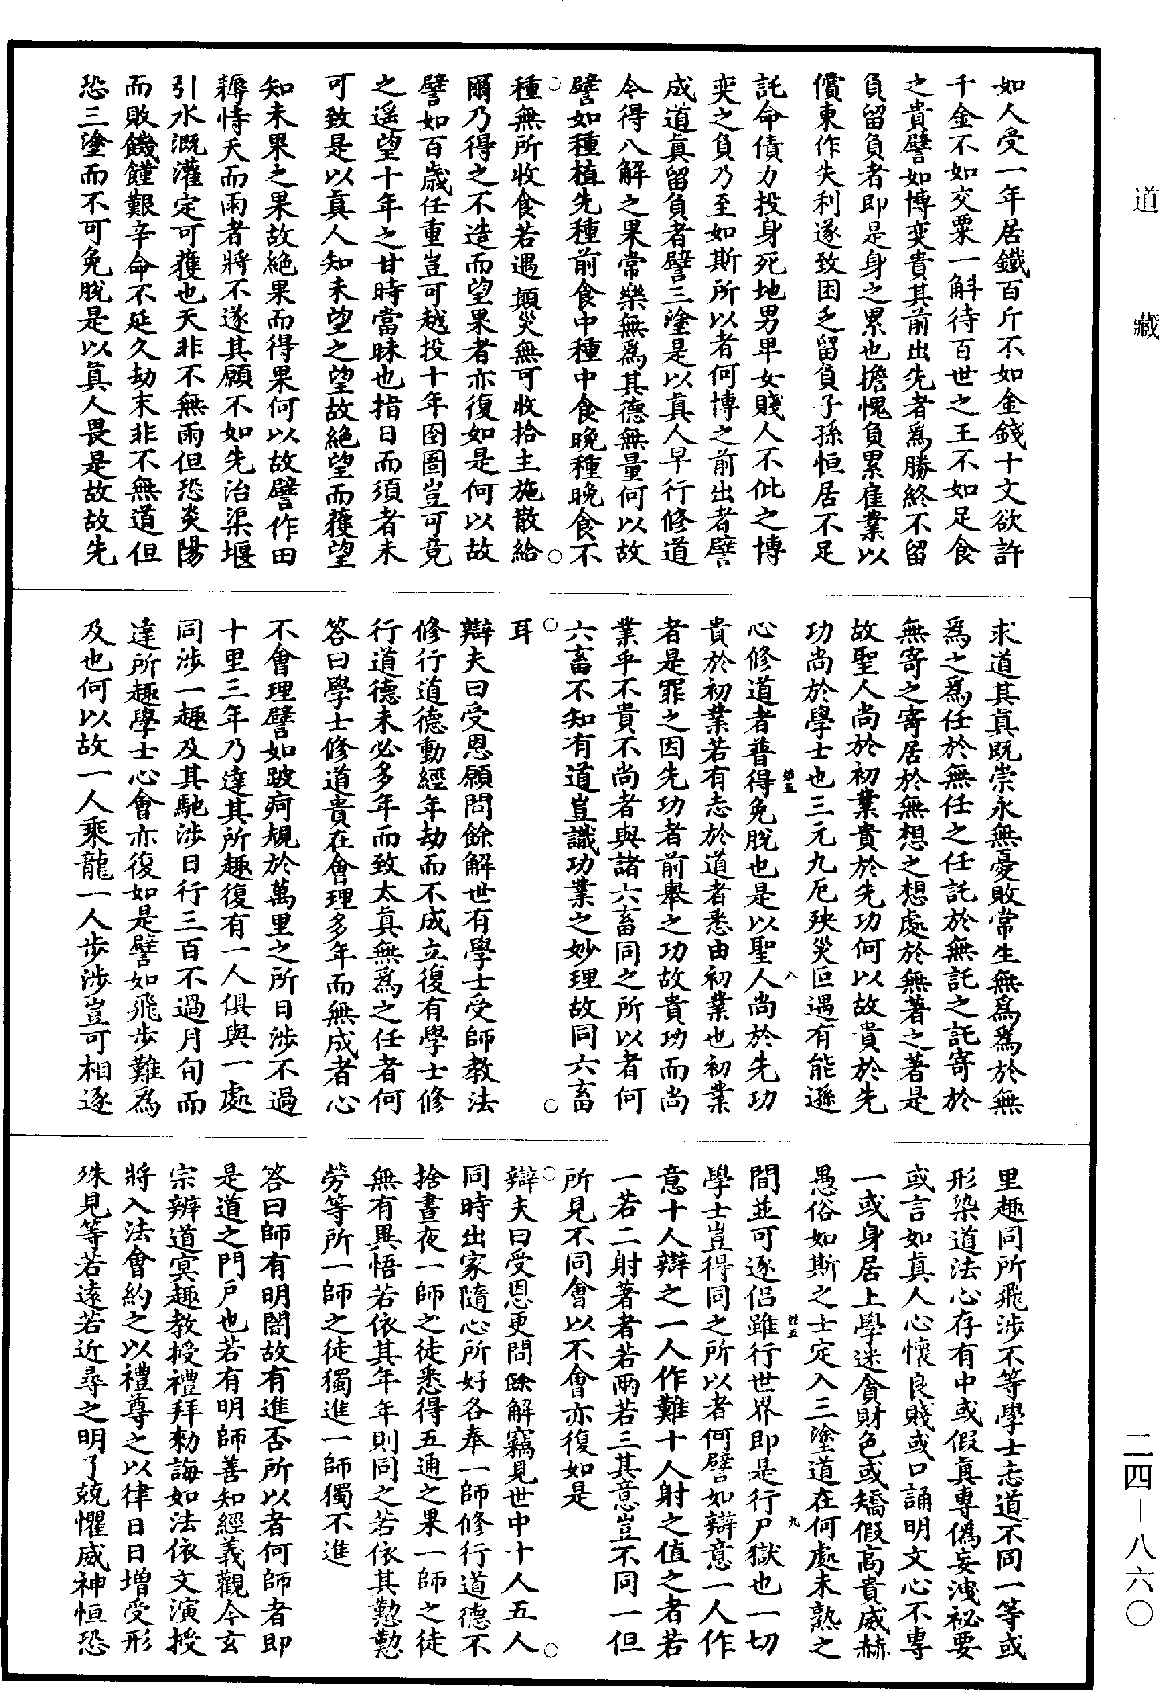 道藏
如人受一年居鐵百斤不如金錢十文欲許
千金不如交粟一斛待百世之王不如足食
之貴譬如博奕貴其前出先者爲勝終不留
負留負者即是身之累也擔愧負累雇業以
償東作失利遂致困乏留負子孫恒居不足
託命債力投身死地男卑女賤人不仳之博
奕之負乃至如斯所以者何博之前出者譬
成道真留負者譬三塗是以真人早行修道
令得八解之果常樂無爲其德無量何以故
譬如種植先種前食中種中食晚種晚食不
種無所收食若遇顛災無可收拾主施散給
爾乃得之不造而望果者亦復如是何以故
譬如百歲任重豈可越投十年囹圄豈可竟
之遥望十年之甘時當昧也指日而須者未
可致是以真人知未望之望故絶望而獲望
知未果之果故絶果而得果何以故譬作田
耨恃天而雨者將不遂其願不如先治渠堰
引水溉灌定可獲也天非不無雨但恐炎陽
而敗饑饉艱辛命不延久劫末非不無道但
恐三塗而不可免脱是以真人畏是故故先
求道其真既崇永無憂敗常生無爲爲於無
爲之爲任於無任之任託於無託之託寄於
無寄之寄居於無想之想處於無著之著是
故聖人尚於初業貴於先功何以故貴於先
功尚於學士也三元九厄殃災叵遇有能遜
心修道者普得免脱也是以聖人尚於先功
貴於初業若有志於道者悉由初業也初業
者是罪之因先功者前舉之功故貴功而尚
業乎不貴不尚者與諸六畜同之所以者何
六畜不知有道豈識功業之妙理故同六畜
耳
辯夫曰受恩願問餘解世有學士受師教法
修行道德動經年劫而不成立復有學士修
行道德未必多年而致太真無爲之任者何
答曰學士修道貴在會理多年而無成者心
不會理譬如跛疴規於萬里之所日涉不過
十里三年乃達其所趣復有一人俱與一處
同涉一趣及其馳涉日行三百不過月旬而
達所趣學士心會亦復如是譬如飛步難爲
及也何以故一人乘龍一人步涉豈可相逐
里趣同所飛涉不等學士志道不同一等或
形染道法心存有中或假真專僞妄洩祕要
或言如真人心懷良賤或口誦明文心不專
一或身居上學迷貪財色或矯假高貴威赫
愚俗如斯之士定入三塗道在何處未熟之
間並可逐侣雖行世界即是行尸獄也一切
學士豈得同之所以者何譬如辯意一人作
意十人辯之一人作難十人射之值之者若
一若二射著者若兩若三其意豈不同一但
所見不同會以不會亦復如是
辯夫曰受恩更問餘解竊見世中十人五人
同時出家隨心所好各奉一師修行道德不
捨晝夜一師之徒悉得五通之果一師之徒
無有異悟若依其年年則同之若依其懃懃
勞等所一師之徒獨進一師獨不進
答曰師有明闇故有進否所以者何師者即
是道之門户也若有明師善知經義觀今玄
宗辨道冥趣教授禮拜勑誨如法依文演授
將入法會約之以禮尊之以律日日增受形
殊見等若遠若近尋之明了兢懼威神恒恐
二四—八六〇